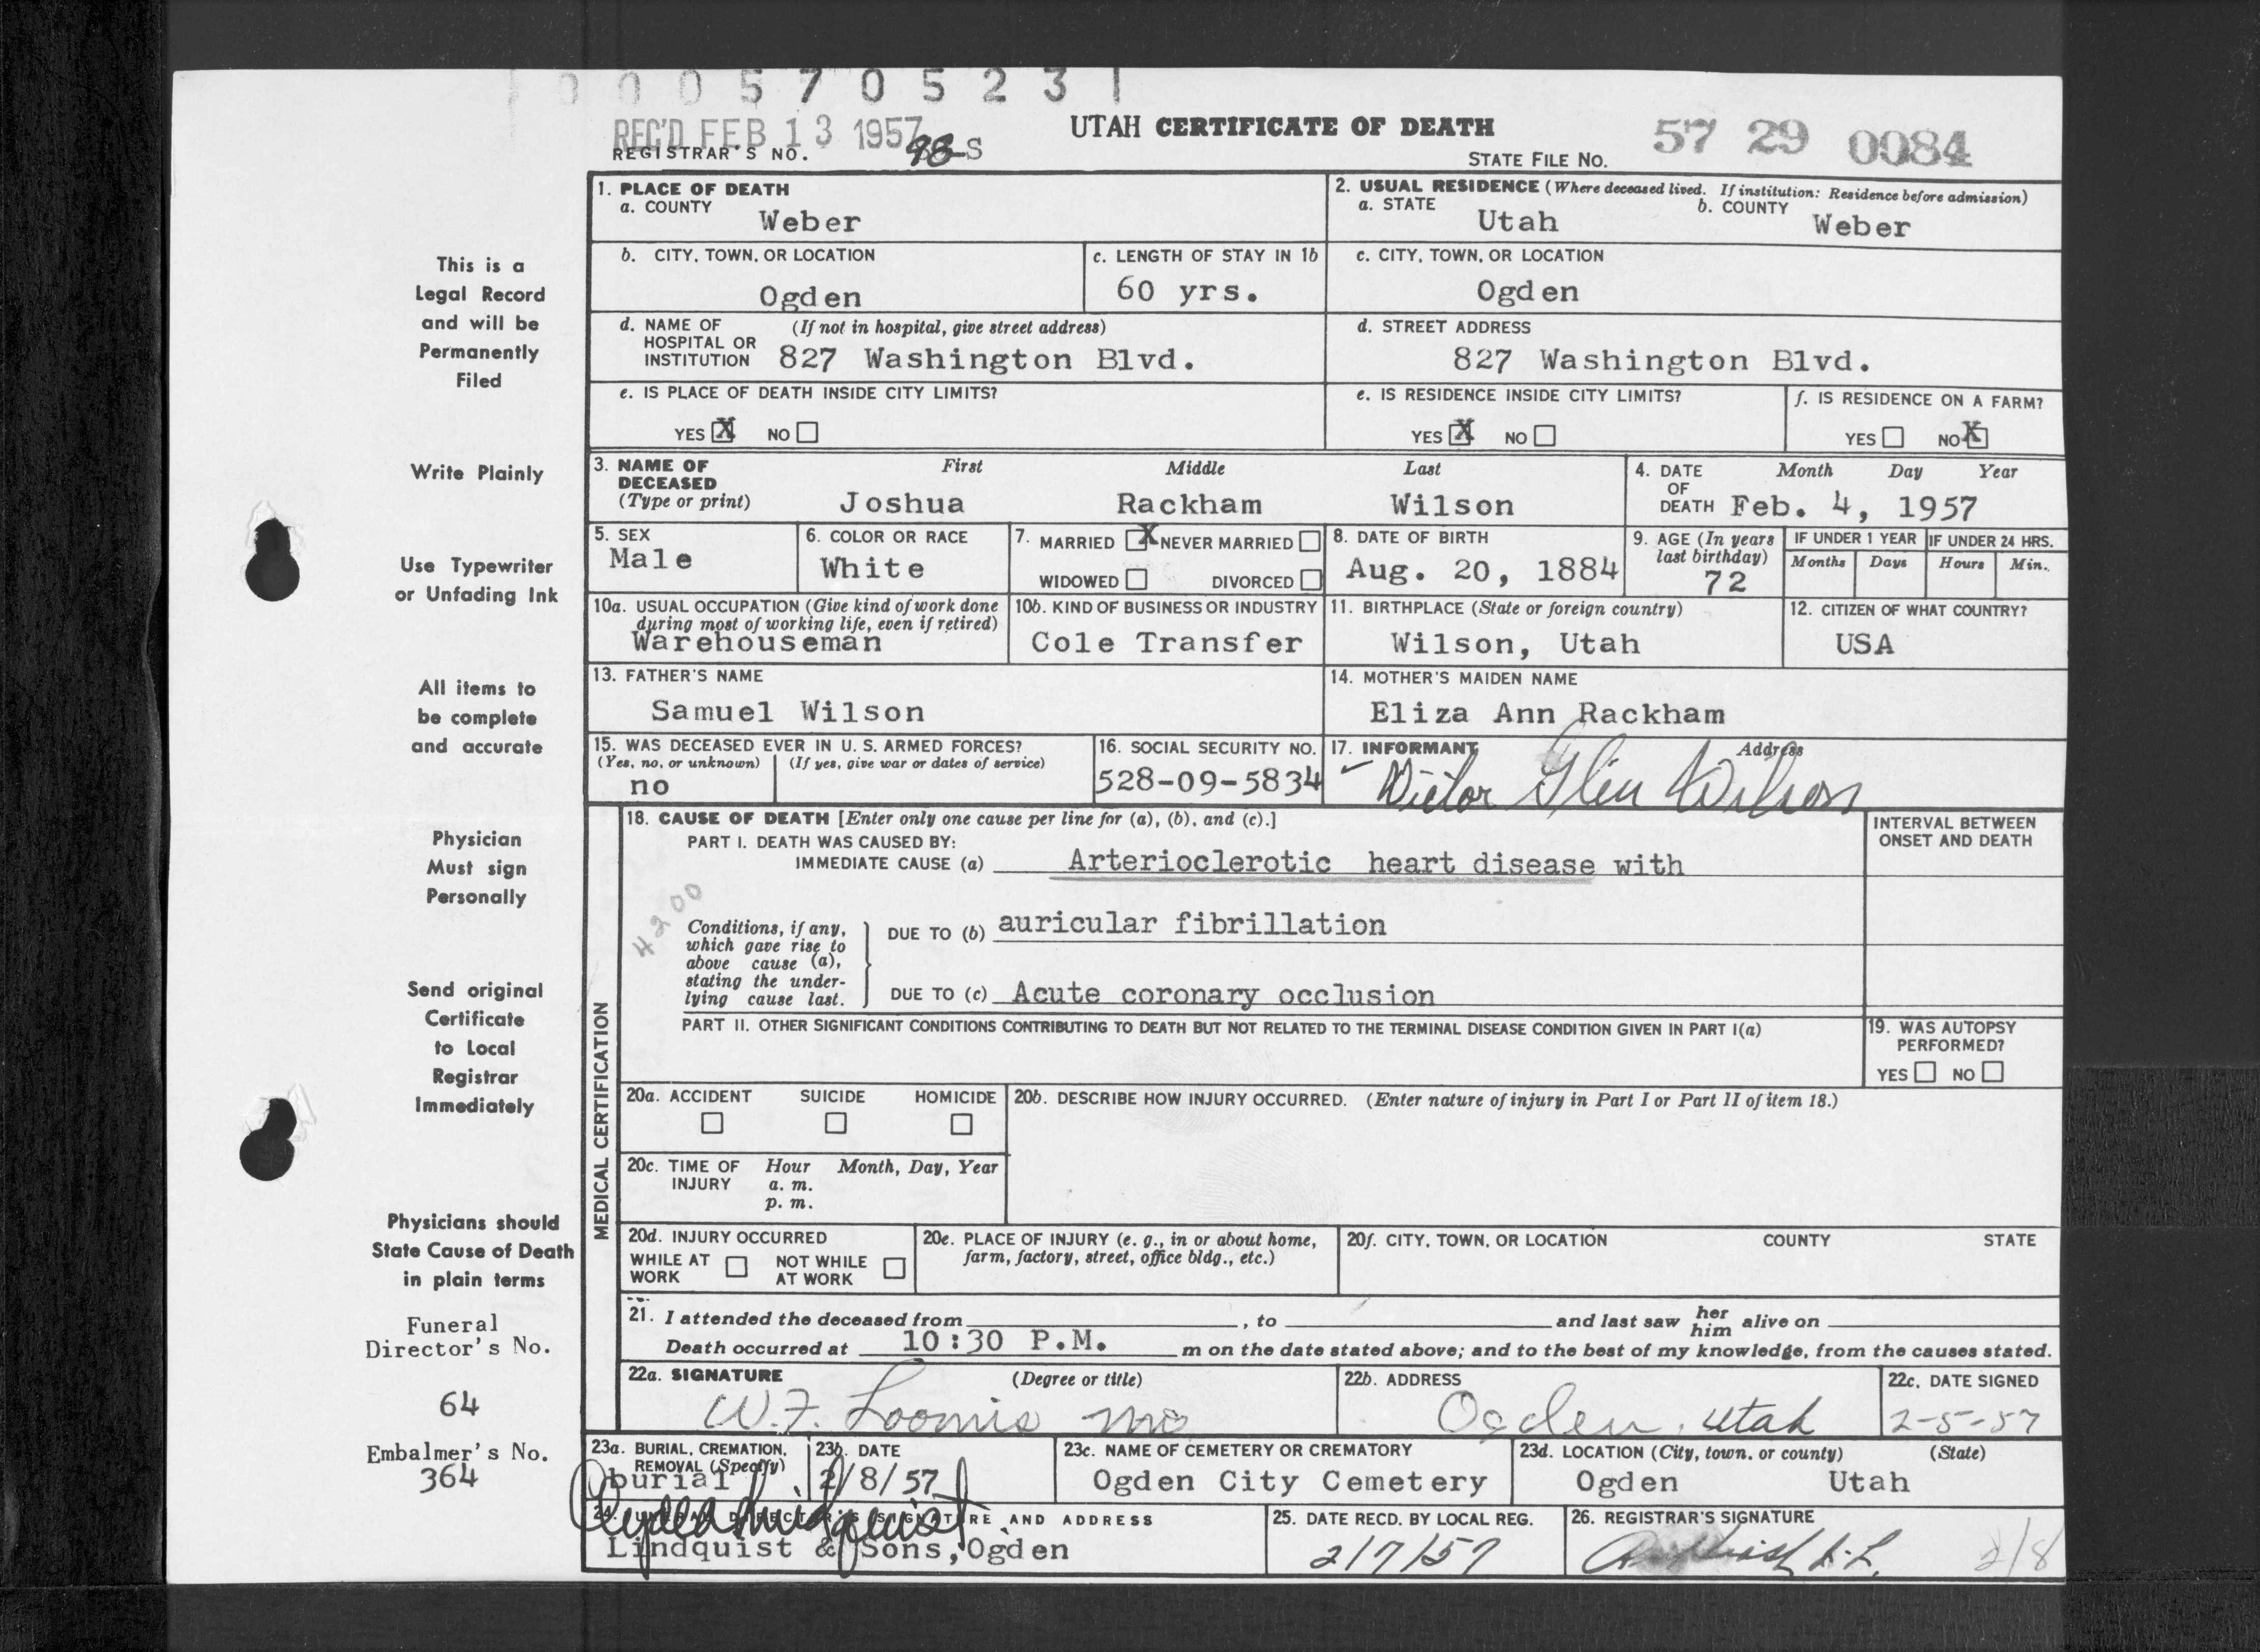 0 0 0 5 7 0 5 2 3 1
REC'D FEB 13 1957
UTAH CERTIFICATE OF DEATH
57 29 0084
REGISTRAR'S NO. 98-S
STATE FILE NO.
This is a
Legal Record
and will be
Permanently
Filed
Write Plainly
Use Typewriter
or Unfading Ink
All items to
be complete
and accurate
Physician
Must sign
Personally
Send original
Certificate
to Local
Registrar
Immediately
Physicians should
State Cause of Death
in plain terms
Funeral
Director's No.
64
Embalmer's No.
364
1. PLACE OF DEATH
a. COUNTY
Weber
2. USUAL RESIDENCE (Where deceased lived. If institution: Residence before admission)
a. STATE
Utah
b. COUNTY
Weber
b. CITY, TOWN, OR LOCATION
Ogden
c. LENGTH OF STAY IN 1b
60 yrs.
c. CITY, TOWN, OR LOCATION
Ogden
d. NAME OF (If not in hospital, give street address)
HOSPITAL OR
INSTITUTION 827 Washington Blvd.
d. STREET ADDRESS
827 Washington Blvd.
e. IS PLACE OF DEATH INSIDE CITY LIMITS?
YES X NO
e. IS RESIDENCE INSIDE CITY LIMITS?
YES X NO
f. IS RESIDENCE ON A FARM?
YES NO X
3. NAME OF DECEASED
(Type or print)
First Middle Last
Joshua Rackham Wilson
4. DATE OF DEATH
Month Day Year
Feb. 4, 1957
5. SEX
Male
6. COLOR OR RACE
White
7. MARRIED X NEVER MARRIED
WIDOWED DIVORCED
8. DATE OF BIRTH
Aug. 20, 1884
9. AGE (In years
last birthday)
72
IF UNDER 1 YEAR
Months Days
IF UNDER 24 HRS.
Hours Min.
10a. USUAL OCCUPATION (Give kind of work done
during most of working life, even if retired)
Warehouseman
10b. KIND OF BUSINESS OR INDUSTRY
Cole Transfer
11. BIRTHPLACE (State or foreign country)
Wilson, Utah
12. CITIZEN OF WHAT COUNTRY?
USA
13. FATHER'S NAME
Samuel Wilson
14. MOTHER'S MAIDEN NAME
Eliza Ann Rackham
15. WAS DECEASED EVER IN U. S. ARMED FORCES?
(Yes, no, or unknown) (If yes, give war or dates of service)
no
16. SOCIAL SECURITY NO.
528-09-5834
17. INFORMANT Address
Victor Glen Wilson
MEDICAL CERTIFICATION
18. CAUSE OF DEATH [Enter only one cause per line for (a), (b), and (c).]
INTERVAL BETWEEN
ONSET AND DEATH
PART I. DEATH WAS CAUSED BY:
IMMEDIATE CAUSE (a) Arterioclerotic heart disease with
4200
Conditions, if any,
which gave rise to
above cause (a),
stating the under-
lying cause last.
DUE TO (b) auricular fibrillation
DUE TO (c) Acute coronary occlusion
PART II. OTHER SIGNIFICANT CONDITIONS CONTRIBUTING TO DEATH BUT NOT RELATED TO THE TERMINAL DISEASE CONDITION GIVEN IN PART I(a)
19. WAS AUTOPSY
PERFORMED?
YES NO
20a. ACCIDENT SUICIDE HOMICIDE
20b. DESCRIBE HOW INJURY OCCURRED. (Enter nature of injury in Part I or Part II of item 18.)
20c. TIME OF INJURY
Hour Month, Day, Year
a. m.
p. m.
20d. INJURY OCCURRED
WHILE AT WORK NOT WHILE AT WORK
20e. PLACE OF INJURY (e. g., in or about home,
farm, factory, street, office bldg., etc.)
20f. CITY, TOWN, OR LOCATION COUNTY STATE
21. I attended the deceased from , to and last saw her him alive on
Death occurred at 10:30 P.M. m on the date stated above; and to the best of my knowledge, from the causes stated.
22a. SIGNATURE (Degree or title)
W. F. Loomis MD
22b. ADDRESS
Ogden, Utah
22c. DATE SIGNED
2-5-57
23a. BURIAL, CREMATION,
REMOVAL (Specify)
burial
23b. DATE
2/8/57
23c. NAME OF CEMETERY OR CREMATORY
Ogden City Cemetery
23d. LOCATION (City, town, or county) (State)
Ogden Utah
24. FUNERAL DIRECTOR'S SIGNATURE AND ADDRESS
Lindquist & Sons, Ogden
25. DATE RECD. BY LOCAL REG.
2/7/57
26. REGISTRAR'S SIGNATURE
2/8